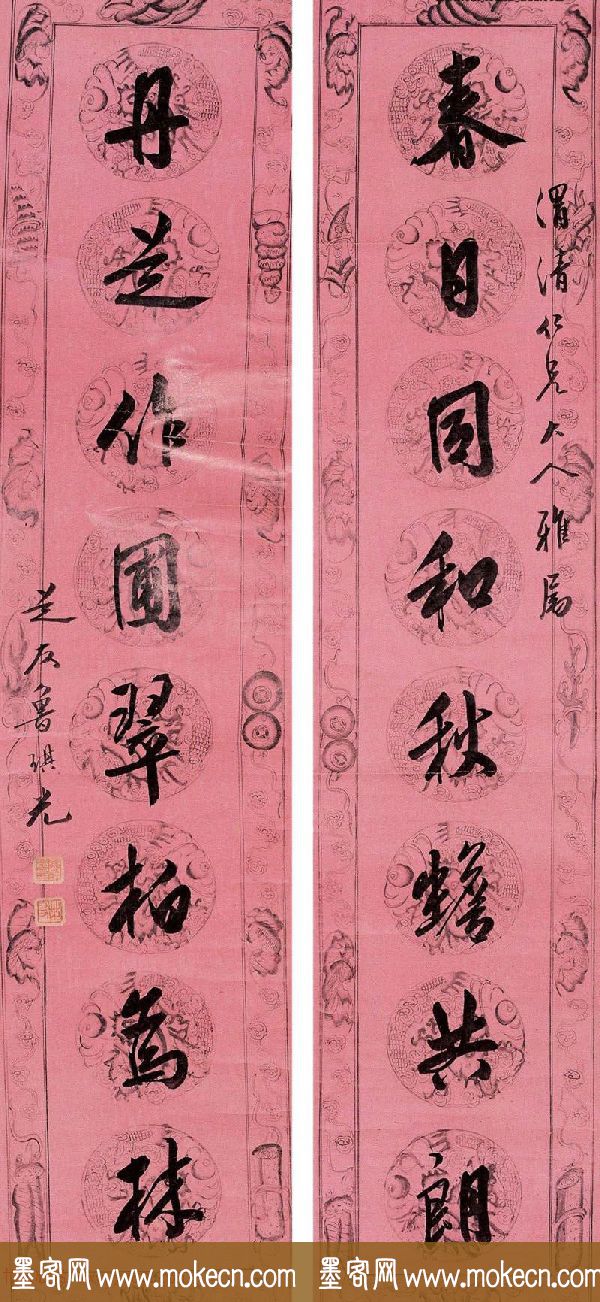 渭清仁兄大人雅属
春日同和秋蟾共朗
丹芝作圃翠柏為林
芝友魯琪光
墨客网 www.mokecn.com
墨客网 www.mokecn.com